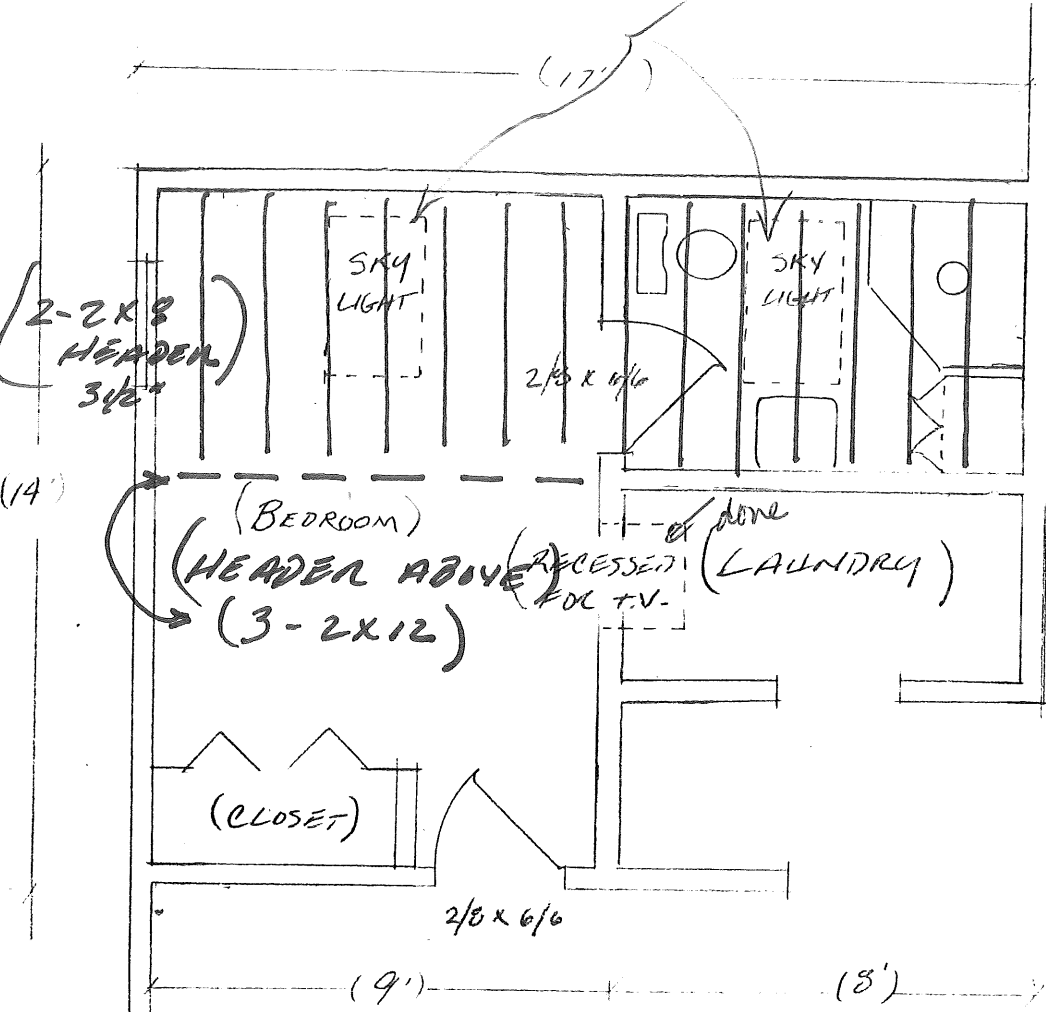 (17')
SKY
LIGHT
SKY
LIGHT
(2-2x8
HEADER)
3 1/2"
2/8 x 6/6
(14')
(BEDROOM)
(HEADER ABOVE)
(3-2x12)
done
(RECESSED
FOR T.V.
(LAUNDRY)
(CLOSET)
2/8 x 6/6
(9')
(8')